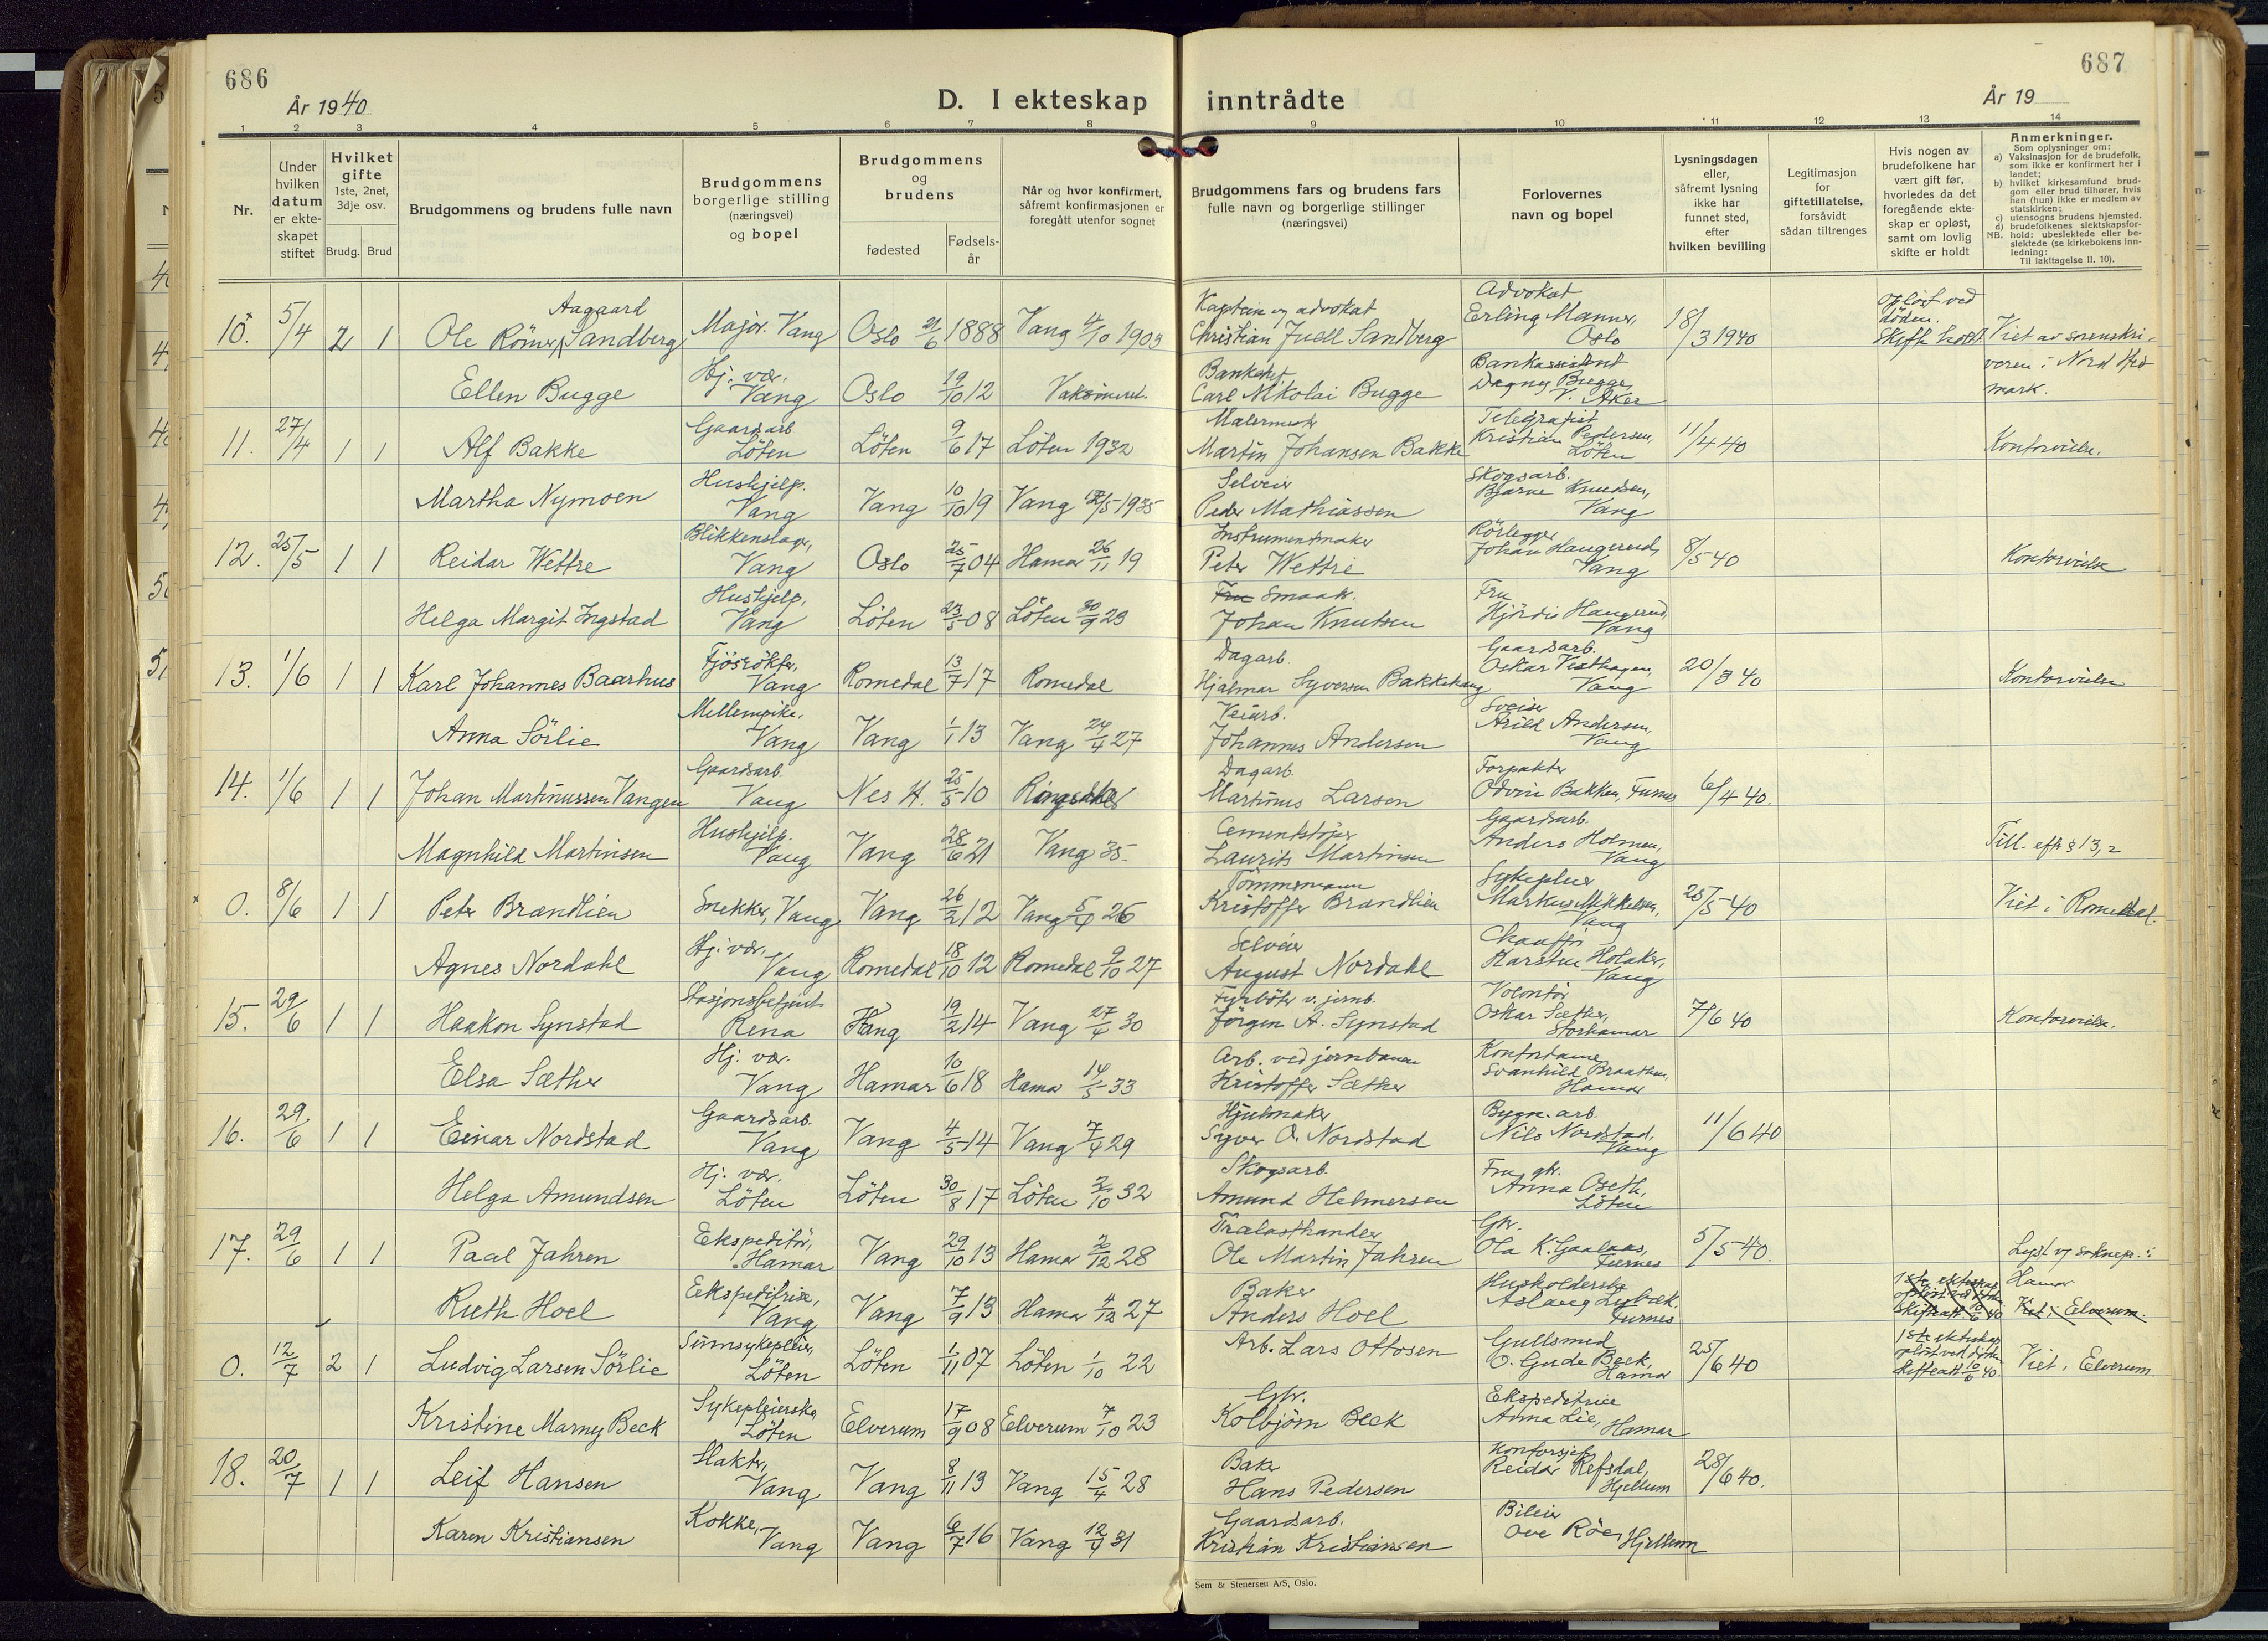 686
687
År 1940
D. I ekteskap inntrådte
År 19
1 2 3 4 5 6 7 8 9 10 11 12 13 14
Nr.
Under hvilken datum er ekteskapet stiftet
Hvilket gifte 1ste, 2net, 3dje osv.
Brudg. Brud
Brudgommens og brudens fulle navn
Brudgommens borgerlige stilling (næringsvei) og bopel
Brudgommens og brudens
fødested
Fødselsår
Når og hvor konfirmert, såfremt konfirmasjonen er foregått utenfor sognet
Brudgommens fars og brudens fars fulle navn og borgerlige stillinger (næringsvei)
Forlovernes navn og bopel
Lysningsdagen eller, såfremt lysning ikke har funnet sted, efter hvilken bevilling
Legitimasjon for giftetillatelse, forsåvidt sådan tiltrenges
Hvis nogen av brudefolkene har vært gift før, hvorledes da det foregående ekteskap er opløst, samt om lovlig skifte er holdt
Anmerkninger.
Som oplysninger om:
a) Vaksinasjon for de brudefolk, som ikke er konfirmert her i landet;
b) hvilket kirkesamfund brudgom eller brud tilhører, hvis han (hun) ikke er medlem av statskirken;
c) utensogns brudens hjemsted.
d) brudefolkenes slektskapsforhold: ubeslektede eller beslektede (se kirkebokens innledning:
NB.
Til iakttagelse II. 10).
10. 5/4 2 1 Ole Römer Aagaard Sandberg Major. Vang Oslo 21/6 1888 Vang 4/10 1903 Kaptein og advokat Christian Juell Sandberg Advokat Erling Manner, Oslo 18/3 1940 opløst ved döden. Skifte holdt Viet av sorenskriveren i Nord Hedmark.
Ellen Bugge Hj. vær. Vang Oslo 19/10 12 Vaksinert. Banksjef Carl Nikolai Bugge Bankassistent Dagny Bugge, V. Aker
11. 27/4 1 1 Alf Bakke Gaardsarb Löten Löten 9/6 17 Löten 1932 Malermester Martin Johansen Bakke Telegrafist Kristian Pedersen, Löten 11/4 40 Kontorvielse.
Martha Nymoen Hushjelp. Vang Vang 10/10 19 Vang 12/5 1935 Selveier Peder Mathiassen Skogsarb. Bjarne Knudsen, Vang
12. 25/5 1 1 Reidar Wettre Blikkenslager, Vang Oslo 25/7 04 Hamar 26/11 19 Instrumentmaker Peter Wettre Rörlegger Johan Haugerud, Vang 8/5 40 Kontorvielse
Helga Margit Ingstad Hushjelp, Vang Löten 23/5 08 Löten 30/9 23 Fru Smaabr. Johan Knutsen Fru Hjördis Haugerud, Vang
13. 1/6 1 1 Karl Johannes Baarhus Fjösrökter, Vang Romedal 13/7 17 Romedal Dagarb. Hjalmar Syversen Bakkehaug Gaardsarb. Oskar Vesthagen, Vang 20/3 40 Kontorvielse
Anna Sörlie Mellempike. Vang Vang 1/1 13 Vang 24/4 27 Veiarb. Johannes Andersen Sveiser Arild Andersen, Vang
14. 1/6 1 1 Johan Martinussen Vangen Gaardsarb. Vang Nes H. 25/5 10 Ringsaker Dagarb. Martinus Larsen Forpakter Odvin Bakken, Furnes 6/4 40.
Magnhild Martinsen Hushjelp. Vang Vang 28/6 21 Vang 35. Cementstöper Laurits Martinsen Gaardsarb. Anders Holmen, Vang Till. efter § 13,2
0. 8/6 1 1 Peter Brændlien Snekker, Vang Vang 26/2 12 Vang 5/4 26 Tömmermann Kristoffer Brændlien Sykepleier Markus Mikkelsen, Vang 25/5 40 Viet i Romedal.
Agnes Nordahl Hj. vær. Vang Romedal 18/10 12 Romedal 9/10 27 Selveier August Nordahl Chaufför Karsten Holaker, Vang
15. 29/6 1 1 Haakon Synstad Stasjonsbetjent Rena Vang 19/2 14 Vang 27/4 30 Fyrböter v. jernb. Jörgen A. Synstad Volontör Oskar Sæther, Storhamar 7/6 40 Kontorvielse.
Elsa Sæther Hj. vær. Vang Hamar 10/6 18 Hamar 14/5 33 Arb. ved jernbanen Kristoffer Sæther Kontordame Svanhild Braathen, Hamar
16. 29/6 1 1 Einar Nordstad Gaardsarb. Vang Vang 4/5 14 Vang 7/4 29 Hjulmaker Syver O. Nordstad Bygn. arb. Nils Nordstad, Vang 11/6 40
Helga Amundsen Hj. vær. Löten Löten 30/8 17 Löten 2/10 32 Skogsarb. Amund Helmersen Fru gbr. Anna Oseth, Löten
17. 29/6 1 1 Paal Jahren Ekspeditör, Hamar Vang 29/10 13 Hamar 2/12 28 Trælasthandler Ole Martin Jahren Gbr. Ola K. Gaalaas, Furnes 5/5 40. Lyst v/ soknepr. i Hamar
Ruth Hoel Ekspeditrise, Vang Vang 7/9 13 Hamar 4/12 27 Baker Anders Hoel Husholderske Aslaug Lybæk. Furnes 1ste ekteskap opløst ved döden Skifteatt. 10/6 40 Viet i Elverum.
0. 12/7 2 1 Ludvig Larsen Sörlie Sinnsykepleier, Löten Löten 1/11 07 Löten 1/10 22 Arb. Lars Ottosen Gullsmed O. Gude Beck, Hamar 25/6 40 1ste ekteskap opløst ved döden Skifteatt. 10/6 40. Viet i Elverum.
Kristine Marny Beck Sykepleierske Löten Elverum 17/9 08 Elverum 7/10 23 Gbr. Kolbjörn Beck Ekspeditrice Anna Lie, Hamar
18. 20/7 1 1 Leif Hansen Slakter, Vang Vang 8/11 13 Vang 15/4 28 Baker Hans Pedersen Kontorsjef Reidar Refsdal, Hjellum 28/6 40.
Karen Kristiansen Kokke, Vang Vang 6/7 16 Vang 12/4 31 Gaardsarb. Kristian Kristiansen Bileier Ove Röe, Hjellum
Sem & Stenersen A/S, Oslo.